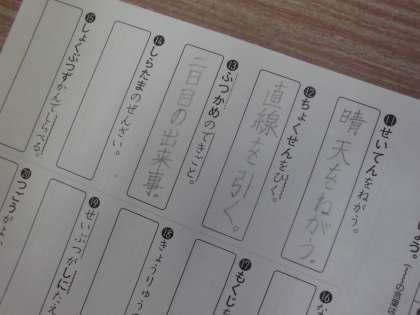 しょう。
⑪せいてんをねがう。
晴天をねがう。
⑫ちょくせんをひく。
直線を引く。
⑬ふつかめのできごと。
二日目の出来事。
⑭しらたまのぜんざい。
⑮しょくぶつずかんでしらべる。
⑯
⑰もくじ
⑱きょうりゅう
⑲せいぶつがしにたえ
⑳つごうがよい